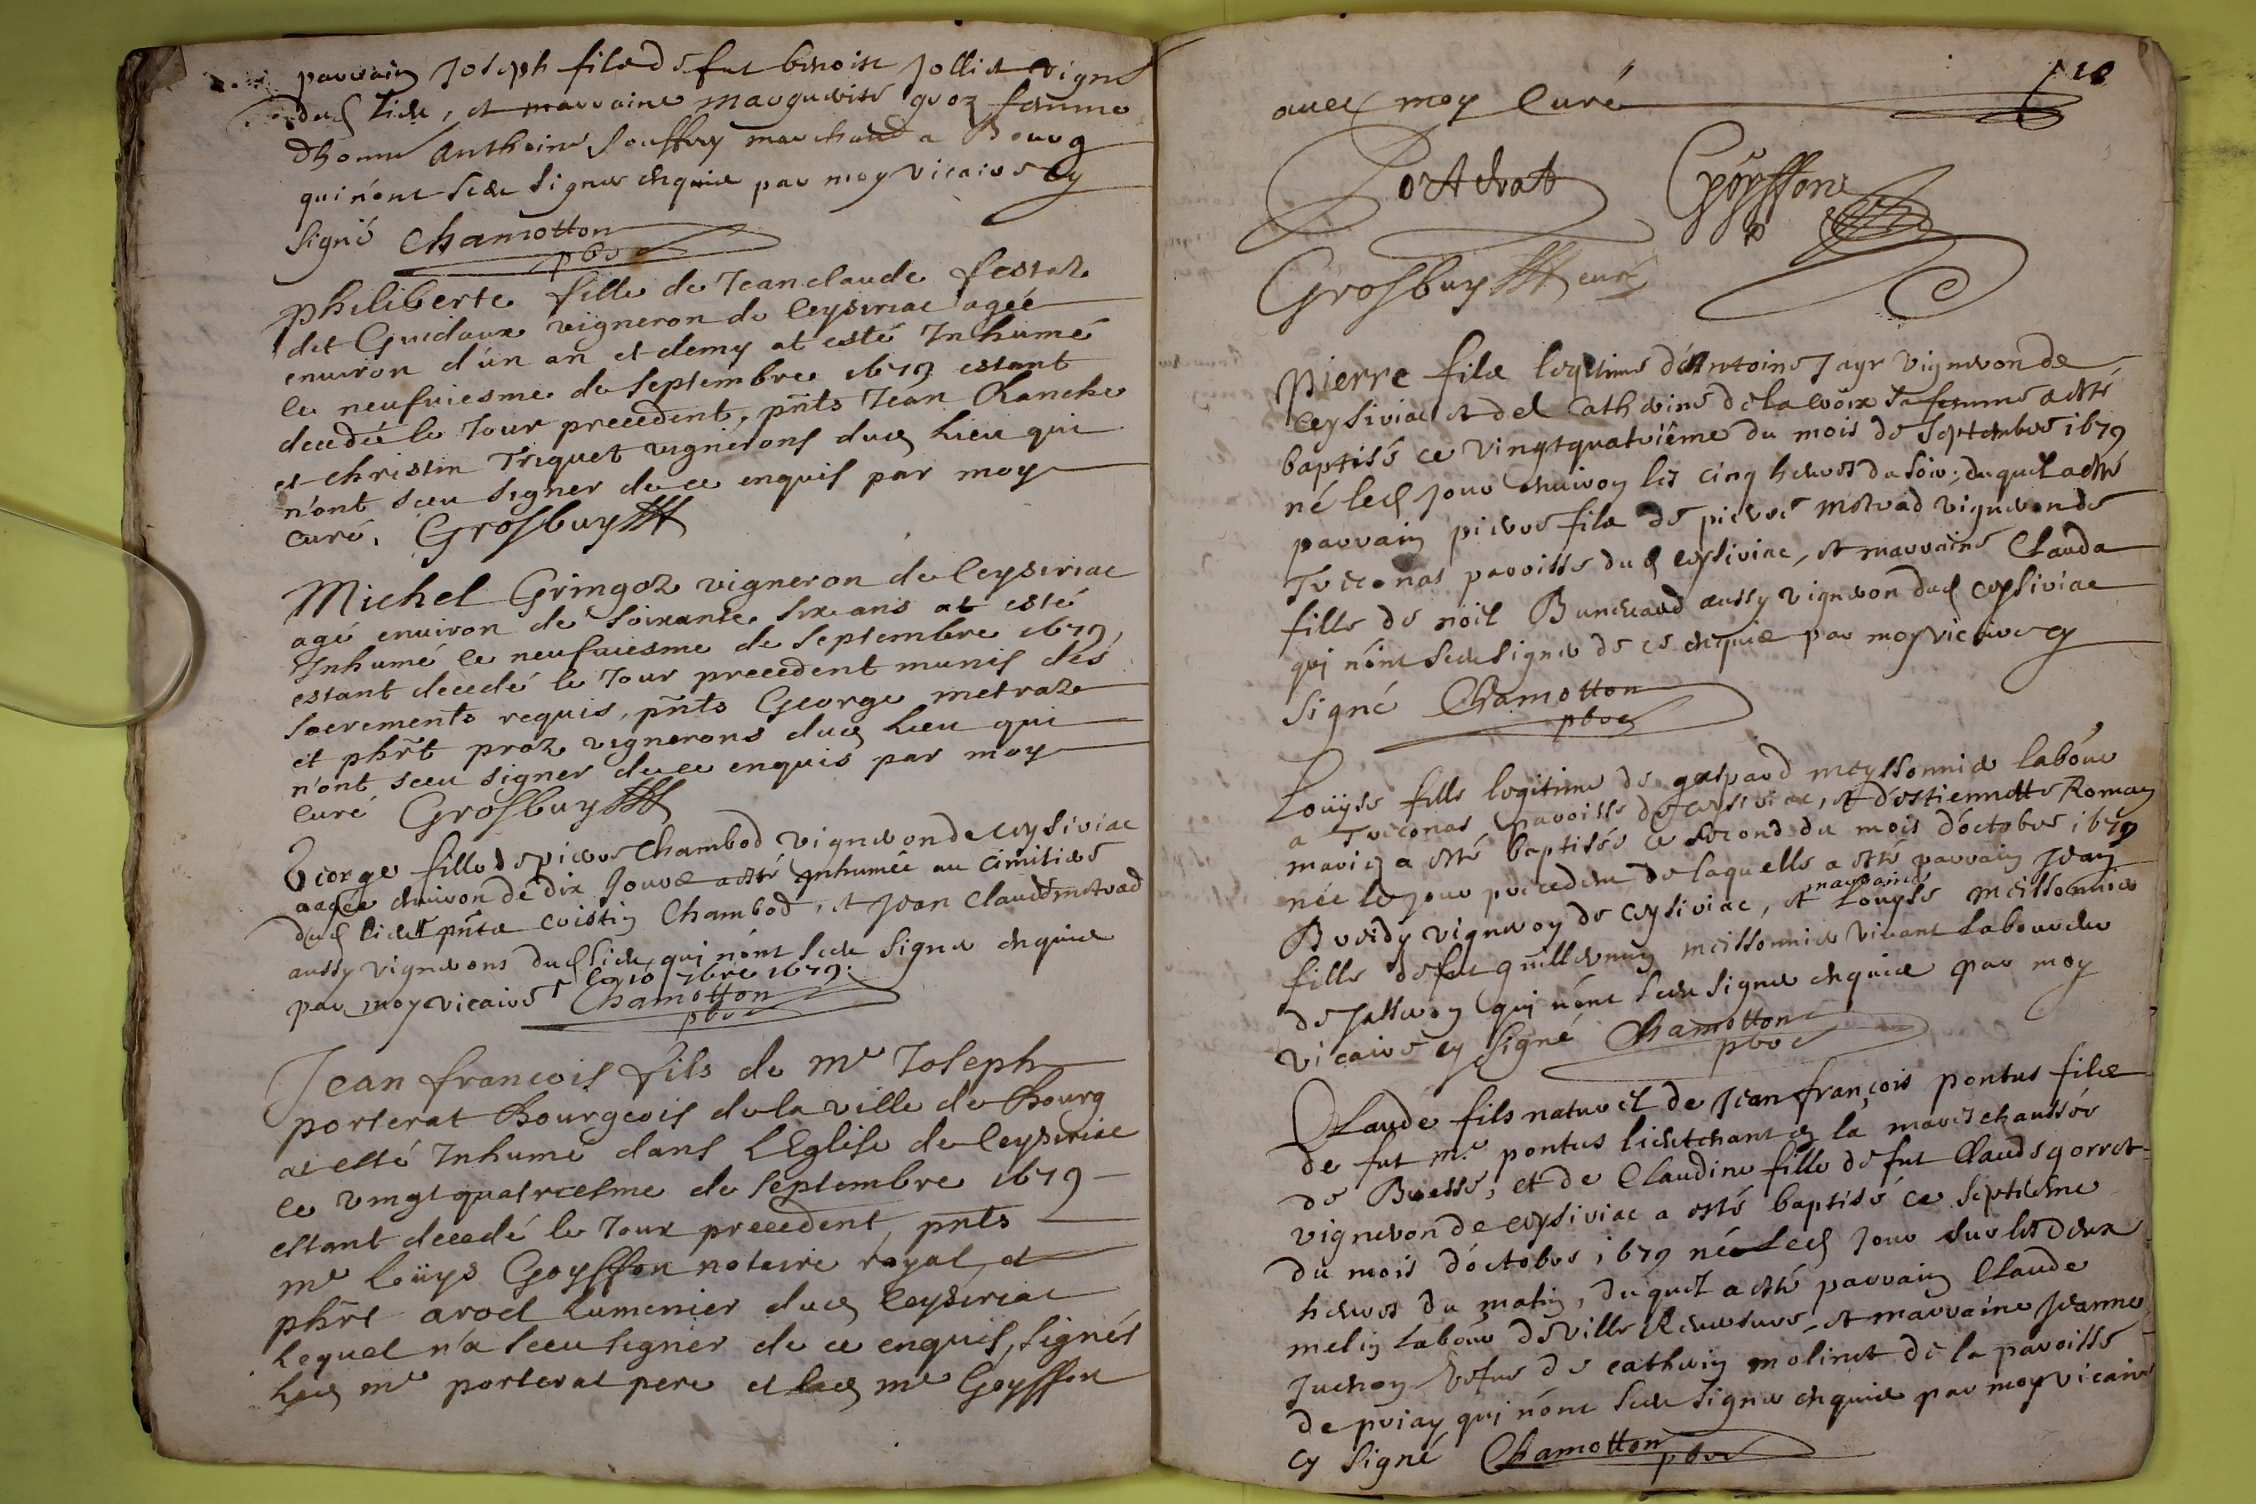 parrain Joseph fils de fut benoist Jollist vigne
dud lieu, et marraine marguerite groz femme
dhonne Anthoine Souffrey marchand a Bourg
qui n'ont sceu signer enquis par moy vicaire cy
signé Chamotton
pbre
Philiberte fille de Jean claude festaz
dit Guidoux vigneron de Ceyseriac agée
environ d'un an et demy at esté Inhumé
le neufviesme de septembre 1679 estant
decedée le Jour precedent, pnts Jean Ranche
et christin Triquet vignerons dud Lieu qui
n'ont sceu signer de ce enquis par moy
curé, Grosbuy
Michel Gringoz vigneron de Ceyseriac
agé environ de soixante six ans at esté
Inhumé le neufviesme de septembre 1679,
estant decedé le Jour precedent munis des
sacrements requis, pnts George metraz
et phrt proz vignerons dud Lieu qui
n'ont sceu signer de ce enquis par moy
curé Grosbuy
George fille de pierre Chambod vigneron de ceysiriac
aagée environ de dix Jours a esté inhumée au cimitiere
dud lieu pnts cristin Chambod, et Jean Claude metrad
aussy vignerons dud lieu, qui n'ont sceu signer enquis
par moy vicaire le 10 7bre 1679.
Chamotton
pbre
Jean francois fils de Me Joseph
porterat Bourgeois de la ville de Bourg
at esté Inhumé dans L'Eglise de Ceyseriac
le vingt quatriesme de septembre 1679
estant decedé le Jour precedent, pnts
Me Loüys Goyffon notaire royal et
phrt arod Lumenier dud Ceyseriac
Lequel n'a sceu signer de ce enquis, signés
Led Me porterat pere et led Me Goyffon
avec moy Curé
Porterat Goyffon
Grosbuy curé
Pierre fils legitime d'Antoine Jayr vigneron de
Ceysiriac et de Catherine de la croix sa femme a esté
baptisé ce vingtquatriême du mois de Septembre 1679
né led Jour environ les cinq heures du soir, duquel a esté
parrain pierre fils de pierre metrad vigneron de
Treconas parroisse dud ceysiriac, et marraine Clauda
fille de noël Buncard aussy vigneron dud ceysiriac
qui n'ont sceu signer de ce enquis par moy vicaire cy
signé Chamotton
pbre
Loüyse fille legitime de gaspard meyssonnier labour
a Treconas parroisse de ceysiriac, et d'estiennette Roman
mariez a esté baptisée ce second du mois d'octobre 1679
née le jour precedent de laquelle a esté parrain Jean
Bredy vigneron de ceysiriac, et marraine Louyse meissonnier
fille de fut guillermin meissonnier vivant Laboureur
de Jasseron qui n'ont sceu signer enquis par moy
vicaire cy signé Chamotton
pbre
Claude fils naturel de Jean françois pontus fils
de fut Me pontus lieutenant en la mareschaussée
de Bresse, et de Claudine fille de fut Claude gorret
vigneron de ceysiriac a esté baptisé ce septiême
du mois d'octobre 1679 né Led Jour sur les deux
heures du matin, duquel a esté parrain Claude
melin Labour de Ville Reversure, et marraine Jeanne
Juenon vefve de catherin molinet de la paroisse
de priay qui n'ont sceu signer enquis par moy vicaire
cy signé Chamotton pbre